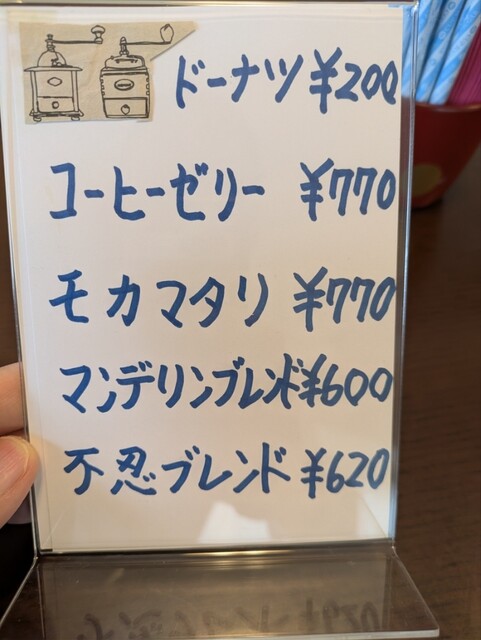 ドーナツ ¥200
コーヒーゼリー ¥770
モカマタリ ¥770
マンデリンブレンド ¥600
不忍ブレンド ¥620